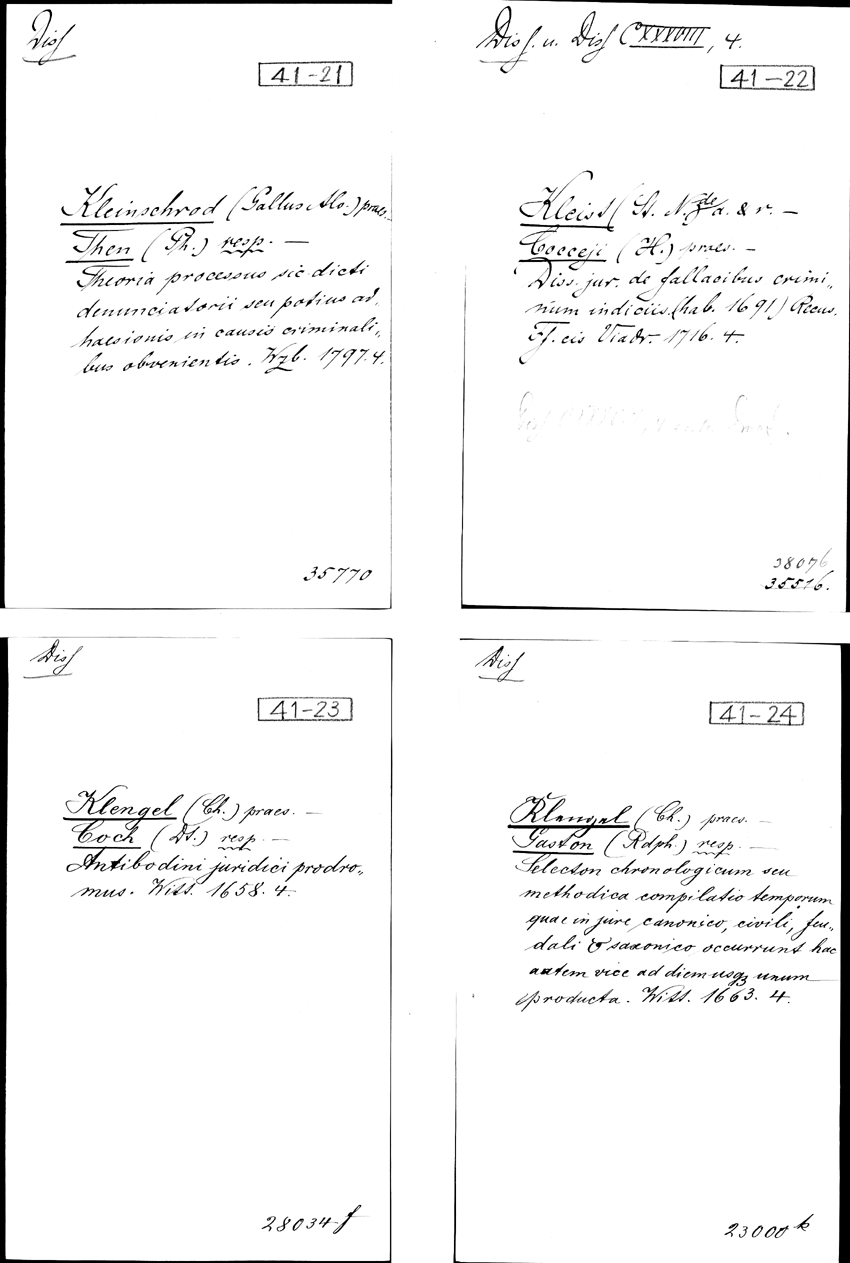 Diss
41-21
Kleinschrod (Gallus Alo.) praes.
Then (Ph.) resp. —
Theoria processus sic dicti
denunciatorii seu potius ad,,
haesionis in causis criminali,,
bus obvenientis. Wzb. 1797. 4.
35770
Diss. u. Diss CXXXVIII, 4.
41-22
Kleist (St. N. de) a. & r. —
Cocceji (H.) praes. —
Diss. jur. de fallacibus crimi,,
num indiciis. (hab. 1691) Recus.
Ff. cis Viadr. 1716. 4.
38076
35516.
Diss
41-23
Klengel (Ch.) praes. —
Coch (Dt.) resp. —
Antibodini juridici prodro,,
mus. Witt. 1658. 4.
28034 f
Diss
41-24
Klengel (Ch.) praes. —
Gaston (Rdph.) resp. —
Selecton chronologicum seu
methodica compilatio temporum
quae in jure canonico, civili, feu,,
dali & saxonico occurrunt hac
autem vice ad diem usq3 unum
producta. Witt. 1663. 4.
23000 k